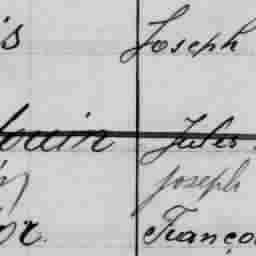 is Joseph
louin Jules
Joseph
or. Franço